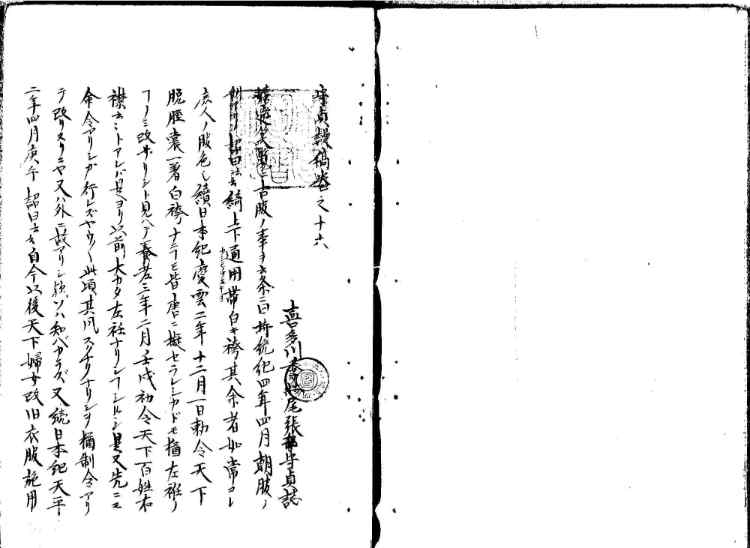 守貞謾稿巻之十六
喜多川季荘尾張部守貞誌
古服ノ事ヲ云条ニ曰持統紀四年四月朝服ノ
詔曰云綺上下通用帯白キ袴其余者如常コレ
庶人ノ服色也續日本紀慶雲二年十二月一日勅令天下
脱脛裳一著白袴ナニフモ皆唐ニ擬セラレシカドモ猶左衽ノ
フノミ改サリシト見ヘテ養老三年二月壬戌初令天下百姓右
襟云々トアレバ是ヨリ以前大カタ左衽ナリシフシルシ是又先ニモ
命令アリシガ行レズヤウヤク此頃其風スタリナリシヲ猶制令アリ
テ改リスリニヤ又ハ外ニ故アリシ欤ソハ知ベカラズ又続日本紀天平
二年四月庚午詔曰云々自今以後天下婦女改旧衣服施用